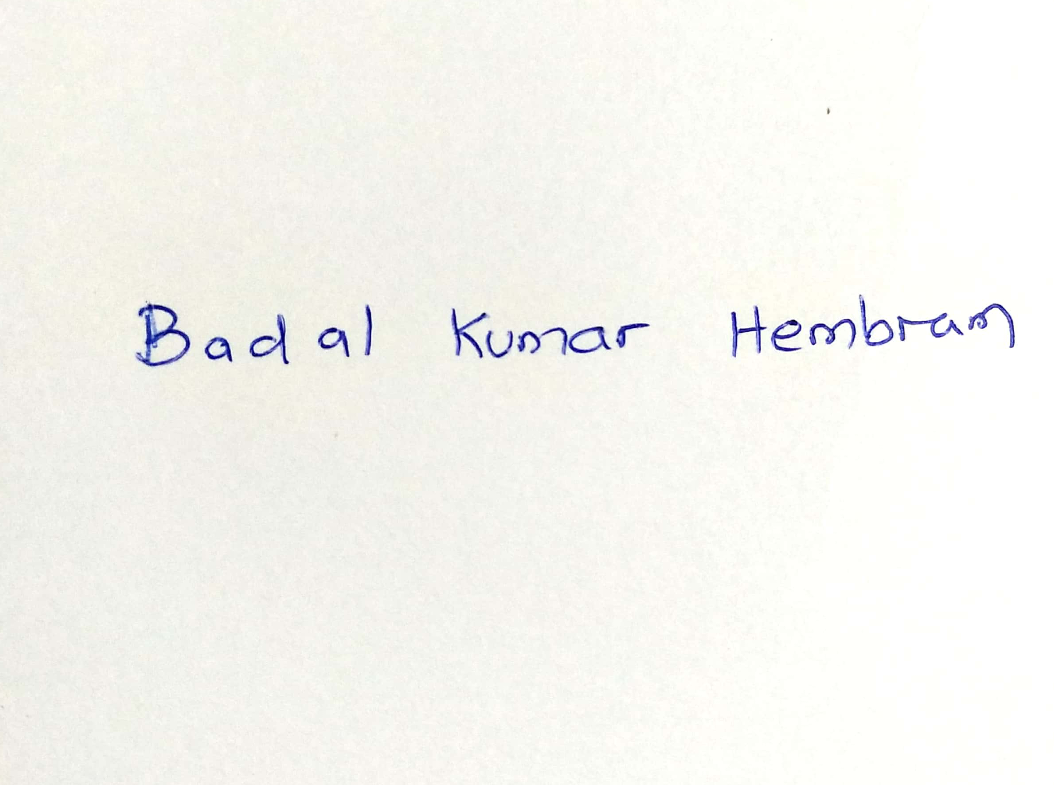 Badal Kumar Hembram